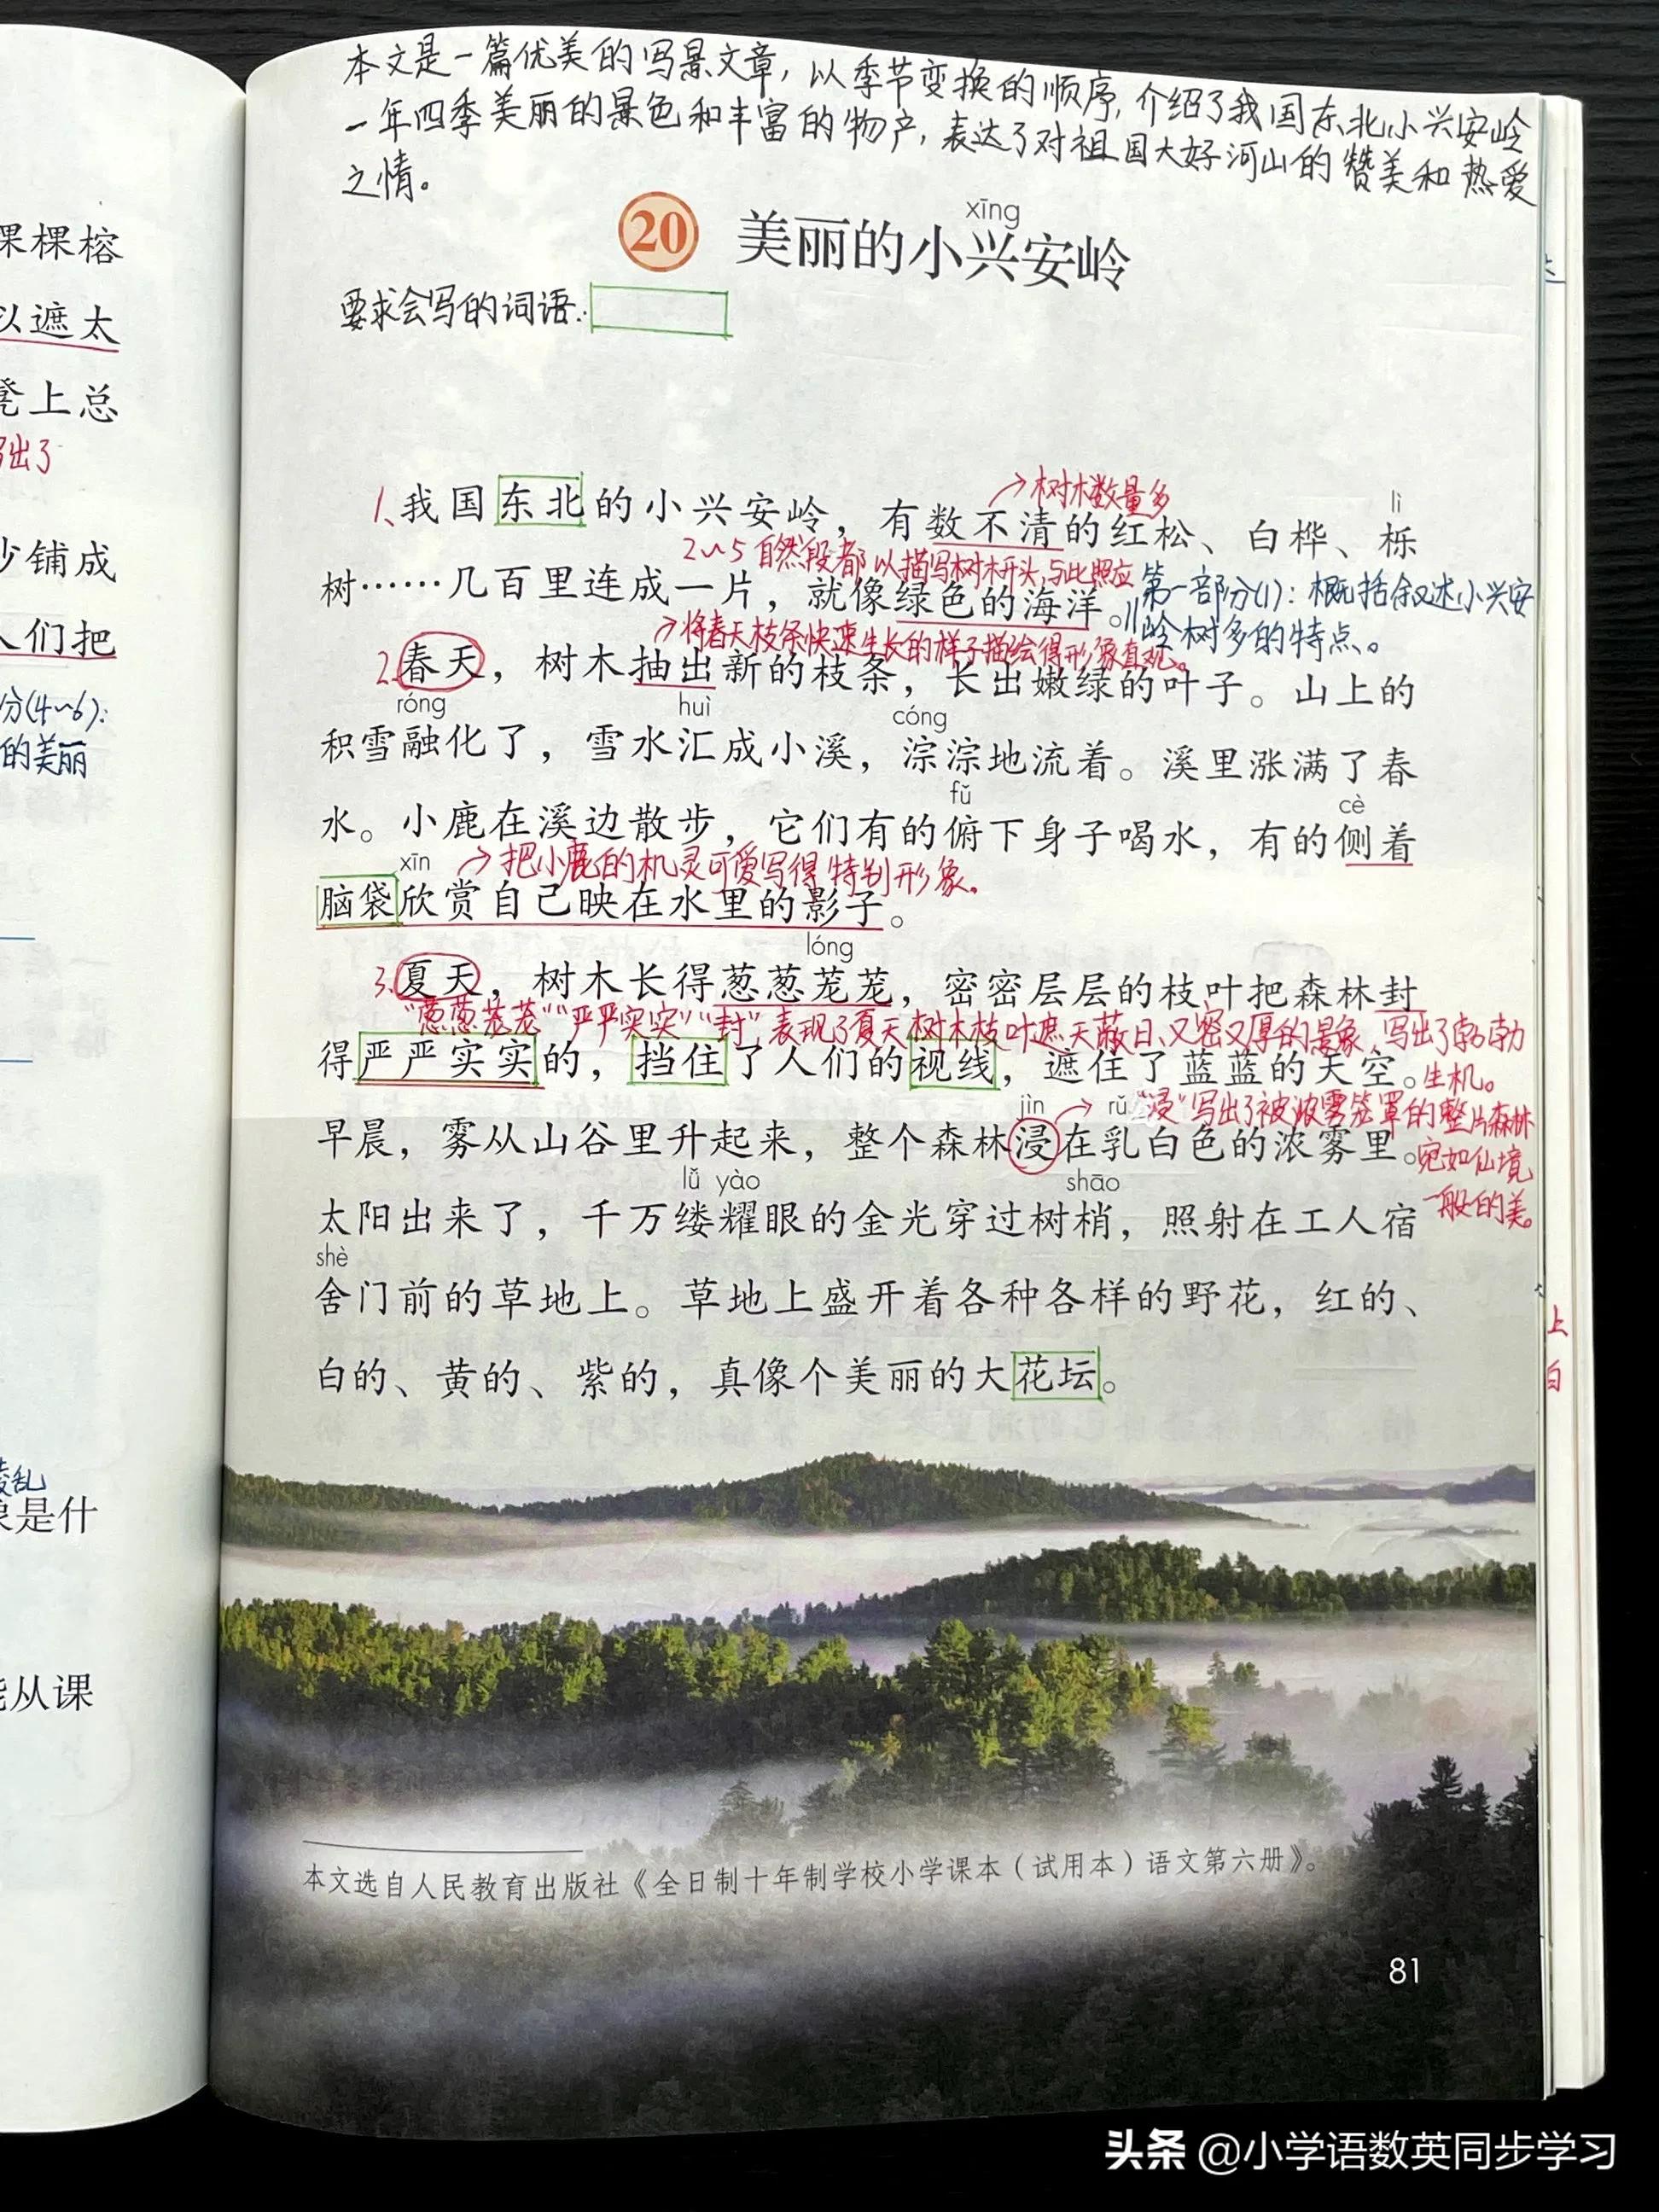 本文是一篇优美的写景文章，以季节变换的顺序，介绍了我国东北小兴安岭
一年四季美丽的景色和丰富的物产，表达了对祖国大好河山的赞美和热爱
之情。
xīng
20 美丽的小兴安岭
要求会写的词语：
棵棕榕
以遮太
凳上总
写出了
少铺成
人们把
分(4~6)：
的美丽
凌乱
象是什
能从课
→树木数量多
lì
1、我国东北的小兴安岭，有数不清的红松、白桦、栎
2~5自然段都以描写树木开头，与此照应
树……几百里连成一片，就像绿色的海洋。
第一部分(1)：概括叙述小兴安
岭树多的特点。
→将春天枝条快速生长的样子描绘得形象直观。
2.春天，树木抽出新的枝条，长出嫩绿的叶子。山上的
róng huì cóng
积雪融化了，雪水汇成小溪，淙淙地流着。溪里涨满了春
fǔ cè
水。小鹿在溪边散步，它们有的俯下身子喝水，有的侧着
xīn →把小鹿的机灵可爱写得特别形象。
脑袋欣赏自己映在水里的影子。
lóng
3.夏天，树木长得葱葱茏茏，密密层层的枝叶把森林封
“葱葱茏茏”“严严实实”“封”，表现了夏天树木枝叶遮天蔽日、又密又厚的景象，写出了勃勃
生机。
得严严实实的，挡住了人们的视线，遮住了蓝蓝的天空。
jìn rǔ
→“浸”写出了被浓雾笼罩的整片森林
宛如仙境
一般的美。
早晨，雾从山谷里升起来，整个森林浸在乳白色的浓雾里。
lǚ yào shāo
太阳出来了，千万缕耀眼的金光穿过树梢，照射在工人宿
shè
舍门前的草地上。草地上盛开着各种各样的野花，红的、
白的、黄的、紫的，真像个美丽的大花坛。
上
白
本文选自人民教育出版社《全日制十年制学校小学课本（试用本）语文第六册》。
81
头条 @小学语数英同步学习